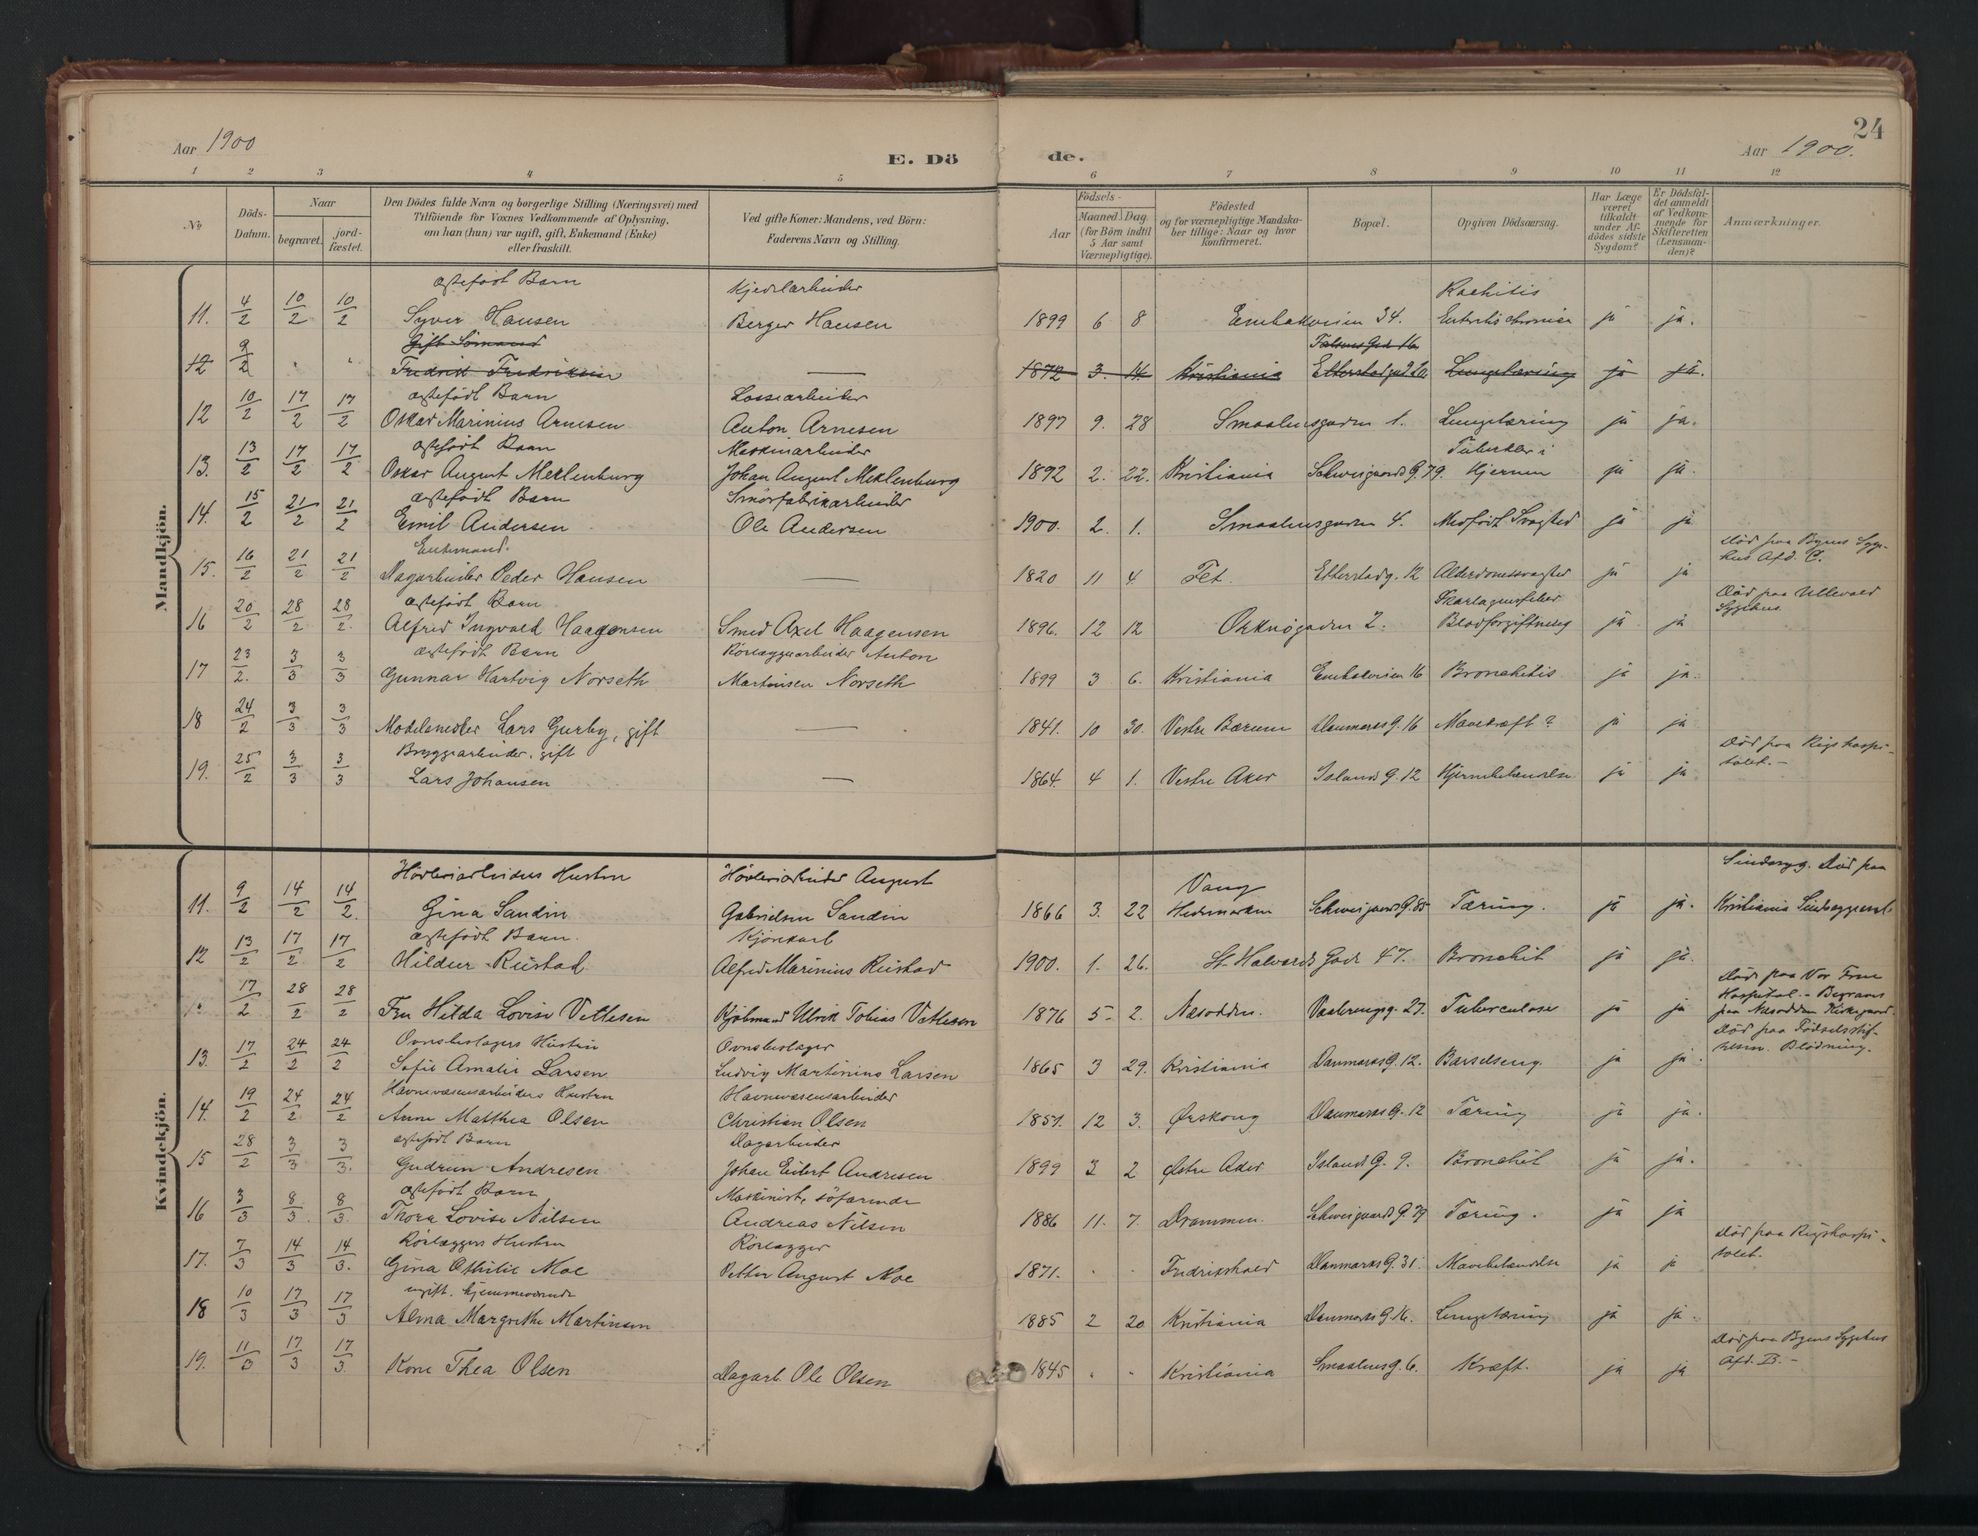 Aar 1900
E. Dö
de.
24
Aar 1900.
1 2 3 4 5 6 7 8 9 10 11 12
No
Döds-Datum.
Naar
begravet.
jord-fæstet.
Den Dödes fulde Navn og borgerlige Stilling (Næringsvei) med
Tilföiende for Voxnes Vedkommende af Oplysning,
om han (hun) var ugift, gift, Enkemand (Enke)
eller fraskilt.
Ved gifte Koner: Mandens, ved Börn:
Faderens Navn og Stilling.
Födsels-
Aar
Maaned Dag
(for Börn indtil
5 Aar samt
Værnepligtige).
Födested
og for værnepligtige Mandska-
ber tillige: Naar og hvor
konfirmeret.
Bopæl.
Opgiven Dödsaarsag.
Har Læge
været
tilkaldt
under Af-
dödes sidste
Sygdom?
Er Dödsfal-
det anmeldt
af Vedkom-
mende for
Skifteretten
(Lensman-
den)?
Anmærkninger.
Mandkjön.
ægtefødt Barn Kjedelarbeider Rachitis
11. 4/2 10/2 10/2 Syver Hansen Berger Hansen 1899 6 8 34. ja ja.
Gift Sømand
12 9/2 Fredrik Fredriksen 1872 3. 14. Kristiania Lungetæring ja ja.
ægtefødt Barn Lossearbeider
12 10/2 17/2 17/2 Oskar Marinius Arnesen Anton Arnesen 1897 9. 28 Smaalensgaden 1. Lungetæring ja ja.
ægtefødt Barn Maskinarbeider Tuberkler i
13. 13/2 17/2 17/2 Oskar August Meklenburg Johan August Meklenburg 1892 2. 22. Kristiania Schweigaards G. 79. Hjernen ja ja.
ægtefødt Barn Smörfabrikarbeider
14. 15/2 21/2 21/2 Emil Andersen Ole Andersen 1900. 2. 1. Smaalensgaden 4. Medfödt Svaghed ja ja
Enkemand. Död paa Byens Syge-
15. 16/2 21/2 21/2 Dagarbeider Peder Hansen 1820 11 4 Fet. Etterstadg. 12 Alderdomssvaghed ja ja hus Afd. C.
ægtefødt Barn Skarlagensfeber Död paa Ullevaal
16 20/2 28/2 28/2. Alfred Ingvald Haagensen Smed Axel Haagensen 1896. 12 12 Orknøgaden 2. Blodforgiftning ja ja Sygehus
ægtefødt Barn Rörlæggerarbeider Anton
17 23/2. 3/3 3/3 Gunnar Hartvig Norseth Martinsen Norseth 1899 3 6. Kristiania 16 Bronchitis ja ja.
18 24/2 3/3 3/3 Modelsnedker Lars Gurby, gift 1841. 10 30. Vestre Bærum Danmarks G. 16 Mavekræft? ja ja
Bryggearbeider, gift Död paa Rigshospi-
19. 25/2 3/3 3/3 Lars Johansen 1864. 4 1. Vestre Aker Islands G. 12 Hjernebetændelse ja ja talet.-
Kvindekjön.
Høvleriarbeiders Hustru Høvleriarbeider August Vang Sindssyg. Död paa
11. 9/2 14/2 14/2. Gina Sandin Gabrielsen Sandin 1866 3. 22 Hedemarken Schweigaards G. 85 Tæring. ja ja. Kristiania
ægtefødt Barn. Kjörekarl
12 13/2 17/2 17/2 Hildur Rustad Alfred Marinius Rustad 1900. 1. 26. St. Halvards Gade 47. Bronchit ja ja.
Död paa Vor Frue
Hospital. - Begravet
17/2 28/2 28/2 Fru Hilda Lovise Vettesen Kjöbmand Ulrik Tobias Vettesen 1876 5 2. Næsodden. Vaalerengg. 27. Tuberculose ja ja paa Næsodden Kirkegaard.
Ovnsbeslagers Hustru Ovnsbeslager Död paa Födselsstif-
13. 17/2 24/2 24/2 Sofie Amalie Larsen Ludvig Martinius Larsen 1865 3 29. Kristiania Danmarks G. 12. Barselseng. ja ja. telsen. Blödning.
Havnevæsenarbeiders Hustru Havnevæsensarbeider
14. 19/2 24/2 24/2 Anne Matthea Olsen Christian Olsen 1851. 12 3. Ørskoug Danmarks G. 12 Tæring ja ja.
ægtefødt Barn Dagarbeider
15 28/2 3/3 3/3. Gudrun Andresen Johan Eilert Andresen 1899 3 2 Østre Aker Islands G. 9. Bronchit ja ja.
ægtefødt Barn Maskinist, söfarende
16 3/3 8/3 8/3. Thora Lovise Nilsen Andreas Nilsen 1886 11. 7. Drammen. Schweigaards G. 79 Tæring. ja ja
Rörlæggers Hustru Rörlægger Död paa Rigshospi-
17. 7/3 14/3 14/3. Gina Othilie Moe Petter August Moe 1871. Fredrikshald Danmarks G. 31. Mavebetændelse ja ja talet.
ugift. hjemmeværende
18 10/3 17/3 17/3 Alma Margrethe Martinsen 1885 2 20 Kristiania Danmarks G. 16. Lungetæring ja ja.
Död paa Byens Sygehus
19. 11/3 17/3 17/3. Kone Thea Olsen Dagarb. Ole Olsen 1845 Kristiania Smaalens g. 6. Kræft. ja ja Afd. B.-